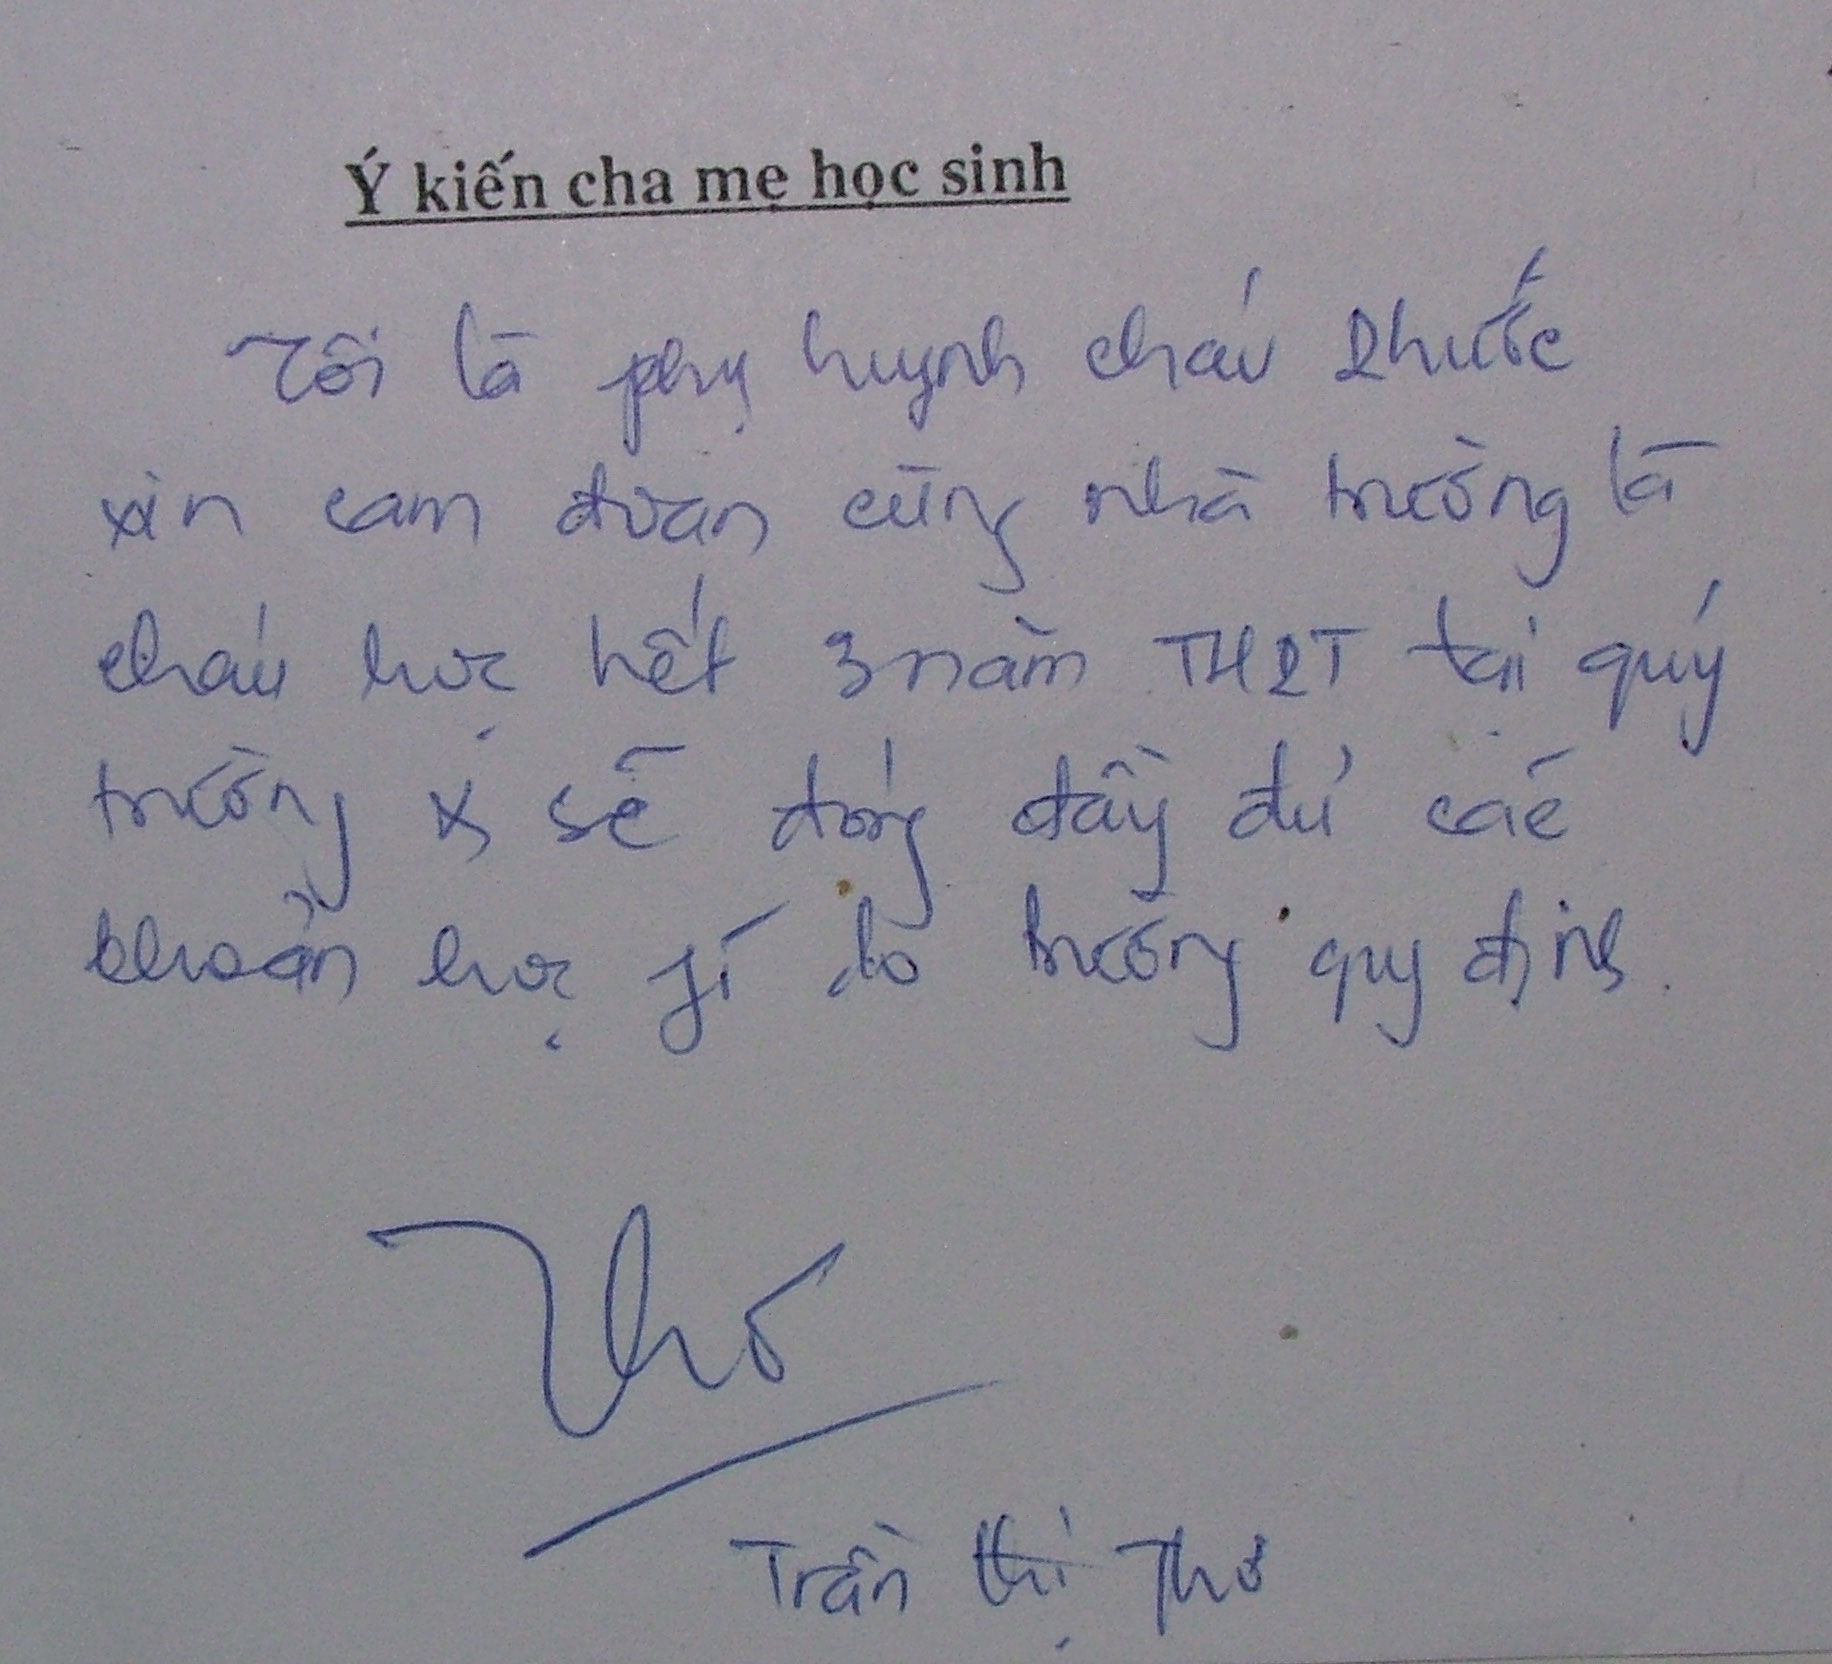 Ý kiến cha mẹ học sinh
Tôi là phụ huynh cháu Phước
xin cam đoan cùng nhà trường là
cháu học hết 3 năm THPT tại quý
trường và sẽ đóng đầy đủ các
khoản học fí do trường quy định.
Thơ
Trần Thị Thơ